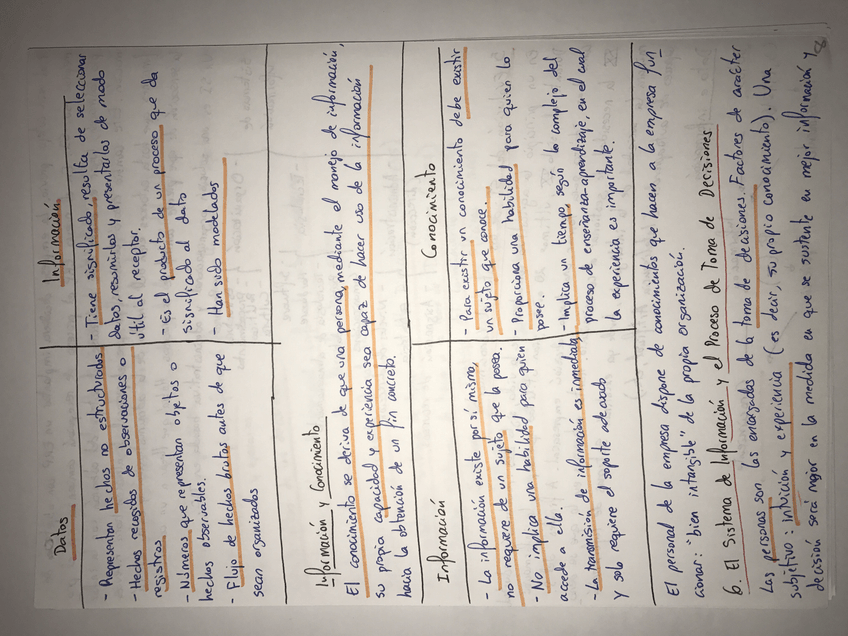 Datos
- Representan hechos no estructurados
- Hechos recogidos de observaciones o
registros
- Números que representan objetos o
hechos observables.
- Flujo de hechos brutos antes de que
sean organizados
Información
- Tiene significado, resulta de seleccionar
datos, resumirlos y presentarlos de modo
útil al receptor.
- Es el producto de un proceso que da
significado al dato
- Han sido modelados
Información y Conocimiento
El conocimiento se deriva de que una persona, mediante el manejo de información,
su propia capacidad y experiencia sea capaz de hacer uso de la información
hacia la obtención de un fin concreto.
Información
- La información existe por sí misma,
no requiere de un sujeto que la posea.
- No implica una habilidad para quien
accede a ella.
- La transmisión de información es inmediata,
y solo requiere el soporte adecuado
Conocimiento
- Para existir un conocimiento debe existir
un sujeto que conoce.
- Proporciona una habilidad para quien lo
posee.
- Implica un tiempo, según lo complejo del
proceso de enseñanza-aprendizaje, en el cual
la experiencia es importante.
El personal de la empresa dispone de conocimientos que hacen a la empresa fun
cionar: "bien intangible" de la propia organización.
6. El Sistema de Información y el Proceso de Toma de Decisiones
Las personas son las encargadas de la toma de decisiones. Factores de carácter
subjetivo: intuición y experiencia (es decir, su propio conocimiento). Una
decisión será mejor en la medida en que se sustente en mejor información y
8